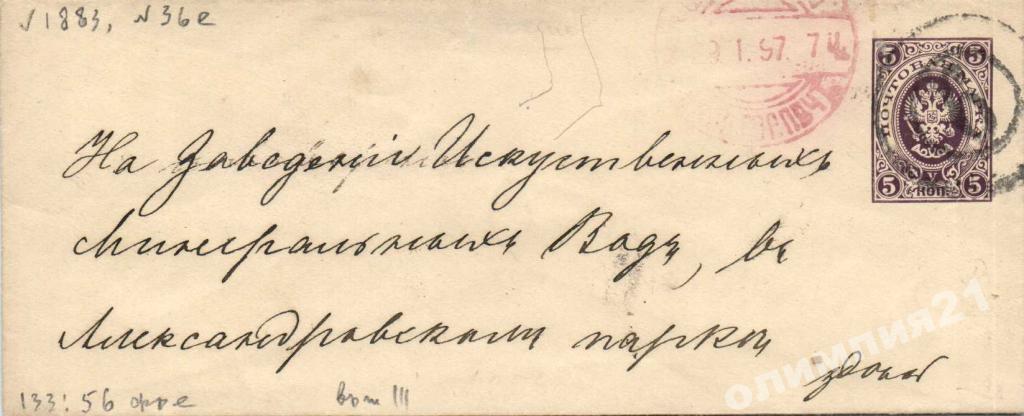 √1883, N36е
9.I.97. 7Ц.
5 5
ПОЧТОВАЯ МАРКА
5 КОП. 5
На Заведенiи Искуственныхъ
Минеральныхъ Водъ, въ
Александровскомъ паркѣ
133:56 фре
врт III
олимпия21